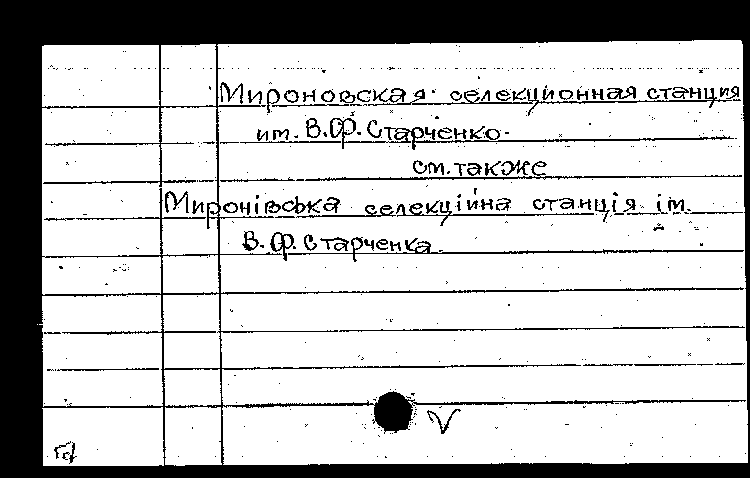 Мироновская селекционная станция
им. В.Ф. Старченко.
см. также
Миронівська селекційна станція ім.
В.Ф. Старченка.
V